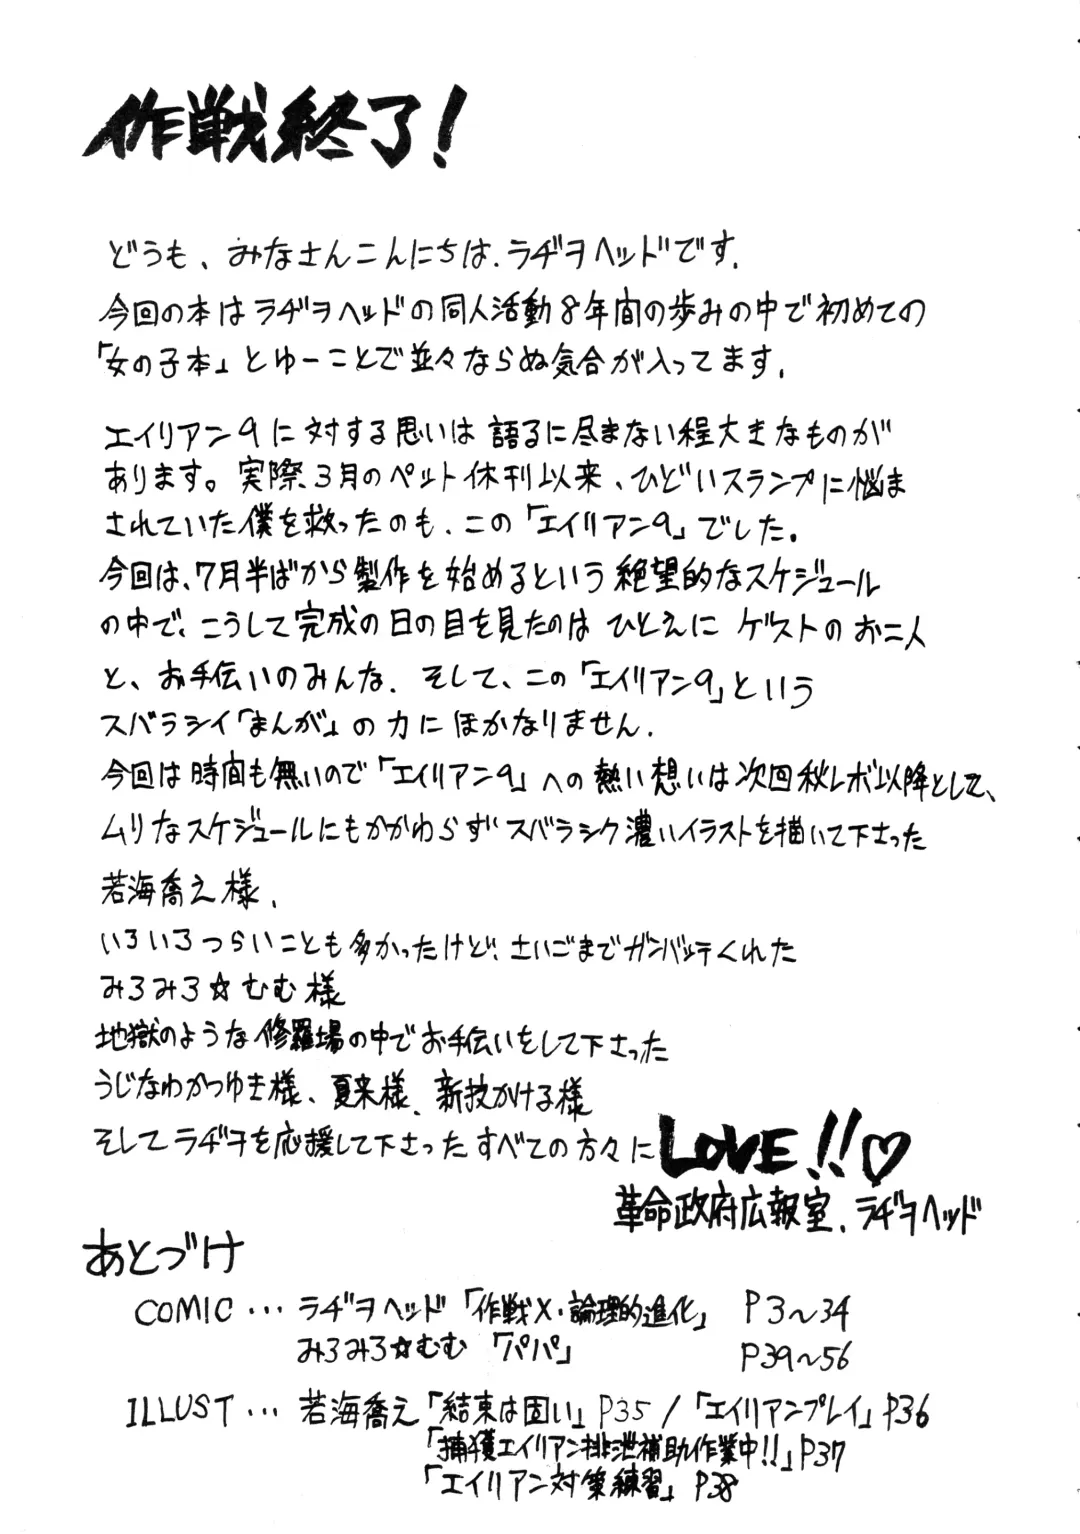 作戦終了!
どうも、みなさんこんにちは、ラヂヲヘッドです。
今回の本はラヂヲヘッドの同人活動8年間の歩みの中で初めての
「女の子本」とゆーことで並々ならぬ気合が入ってます。
エイリアン9に対する思いは語るに尽まない程大きなものが
あります。実際、3月のペット休刊以来、ひどいスランプに悩ま
されていた僕を救ったのも、この「エイリアン9」でした。
今回は、7月半ばから製作を始めるという絶望的なスケジュール
の中で、こうして完成の日の目を見たのはひとえにゲストのお二人
と、お手伝いのみんな、そして、この「エイリアン9」という
スバラシイ「まんが」の力にほかなりません。
今回は時間も無いので「エイリアン9」への熱い想いは次回秋レボ以降として、
ムリなスケジュールにもかかわらずスバラシク濃いイラストを描いて下さった
若海喬え様、
いろいろつらいことも多かったけど、さいごまでガンバッテくれた
みろみろ☆むむ様
地獄のような修羅場の中でお手伝いをして下さった
うじなわかつゆき様、夏来様、新技かける様
そしてラヂヲを応援して下さったすべての方々に LOVE!!♡
革命政府広報室、ラヂヲヘッド
あとづけ
COMIC … ラヂヲヘッド「作戦X・論理的進化」 P3~34
みろみろ☆むむ「パパ」 P39~56
ILLUST … 若海喬え「結束は固い」P35 /「エイリアンプレイ」P36
「捕獲エイリアン排泄補助作業中!!」P37
「エイリアン対策練習」P38